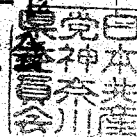 日本共産
党神奈川
県委員会